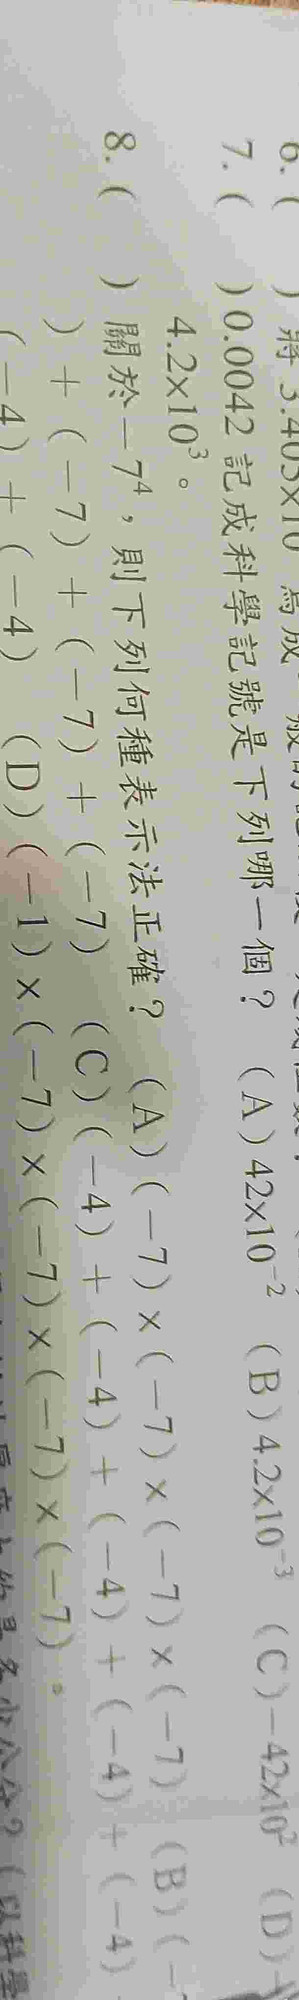 6. ( ) 將 3.403×10
7. ( ) 0.0042 記成科學記號是下列哪一個？ (A) 42×10⁻² (B) 4.2×10⁻³ (C) −42×10² (D)
4.2×10³。
8. ( ) 關於 −7⁴，則下列何種表示法正確？ (A) (−7)×(−7)×(−7)×(−7) (B) (−
) + (−7) + (−7) + (−7) (C) (−4) + (−4) + (−4) + (−4) + (−4)
(−4) + (−4) (D) (−1)×(−7)×(−7)×(−7)×(−7)。